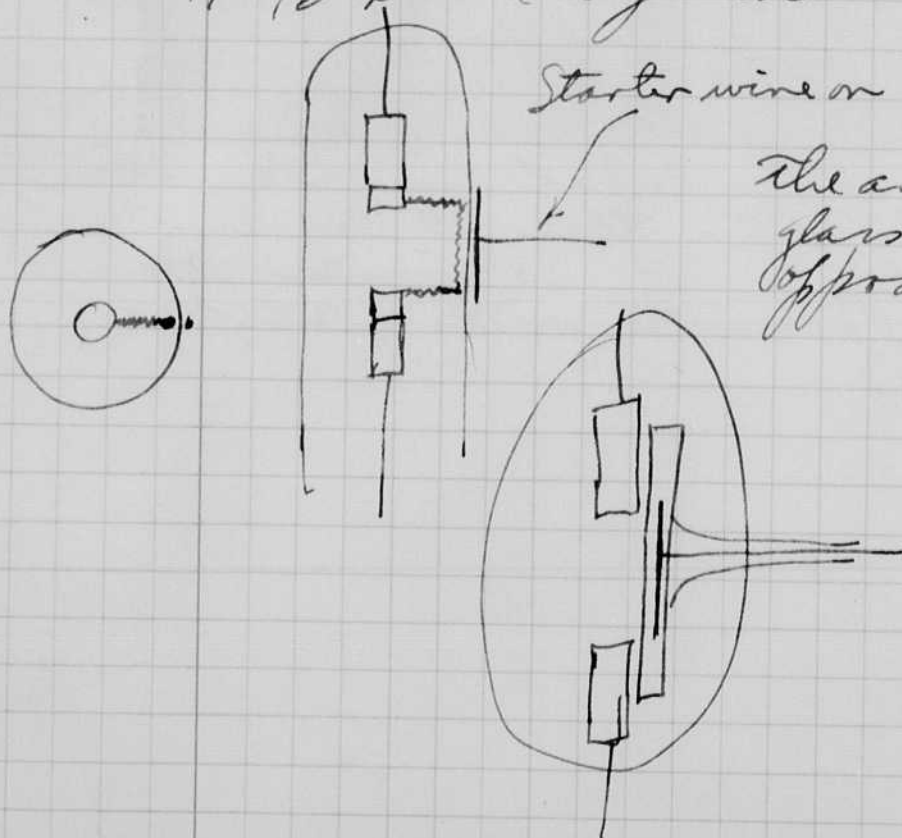 Starter wire on
The a
glass
oppo